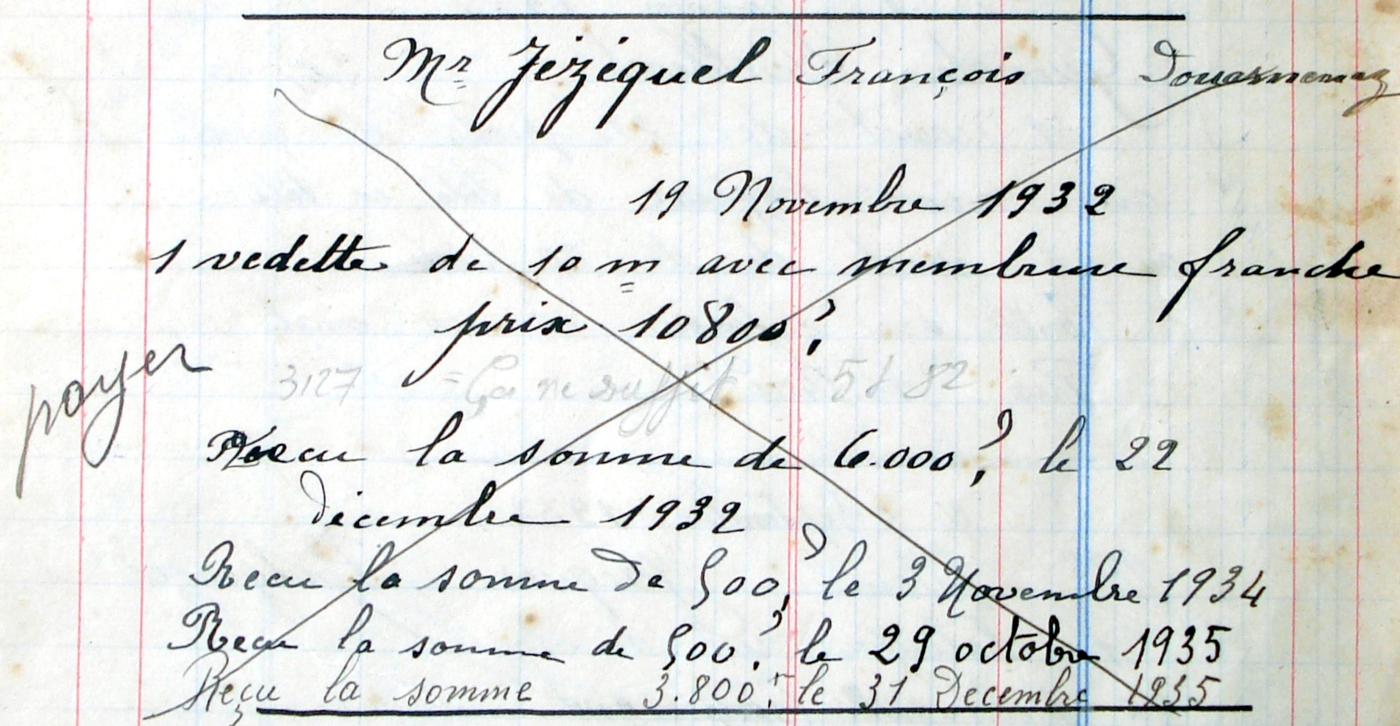 Mr Jézéquel François Douarnenez
19 Novembre 1932
1 vedette de 10 m avec membrure franche
prix 10800 f
3127 = Ça ne suffit
payer
Recu la somme de 6.000 f le 22
décembre 1932
Recu la somme de 500 f le 3 Novembre 1934
Recu la somme de 500 f le 29 octobre 1935
Reçu la somme 3.800 f le 31 Decembre 1935